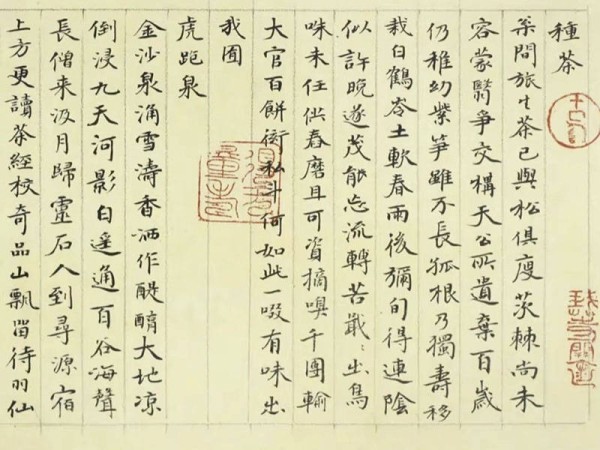 種茶
枀間旅生茶已與松俱廋茨棘尚未
容蒙翳爭交構天公所遺棄百歲
仍稚幼紫笋雖不長孤根乃獨壽移
栽白鶴岺土軟春雨後彌旬得連陰
似許晚遂茂能忘流轉苦戢〻出鳥
咮未任供舂磨且可資摘嗅千團輸
大官百餅衒私斗何如此一啜有味出
我囿
虎跑泉
金沙泉涌雪濤香洒作醍醐大地凉
倒浸九天河影白遥通百谷海聲
長僧来汲月歸靈石人到尋源宿
上方更讀茶經校奇品山瓢畱待羽仙